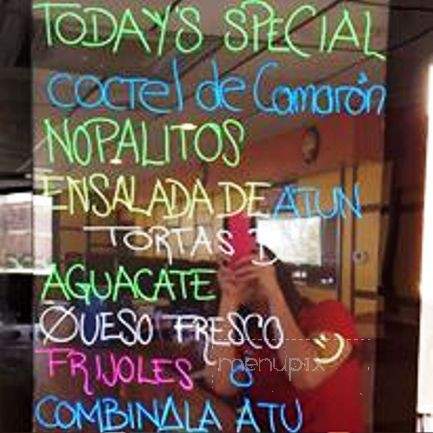 TODAY'S SPECIAL
coctel de Camarón
NOPALITOS
ENSALADA DE ATUN
TORTAS D
AGUACATE
QUESO FRESCO
FRIJOLES ó
menupix
COMBINALA A TU